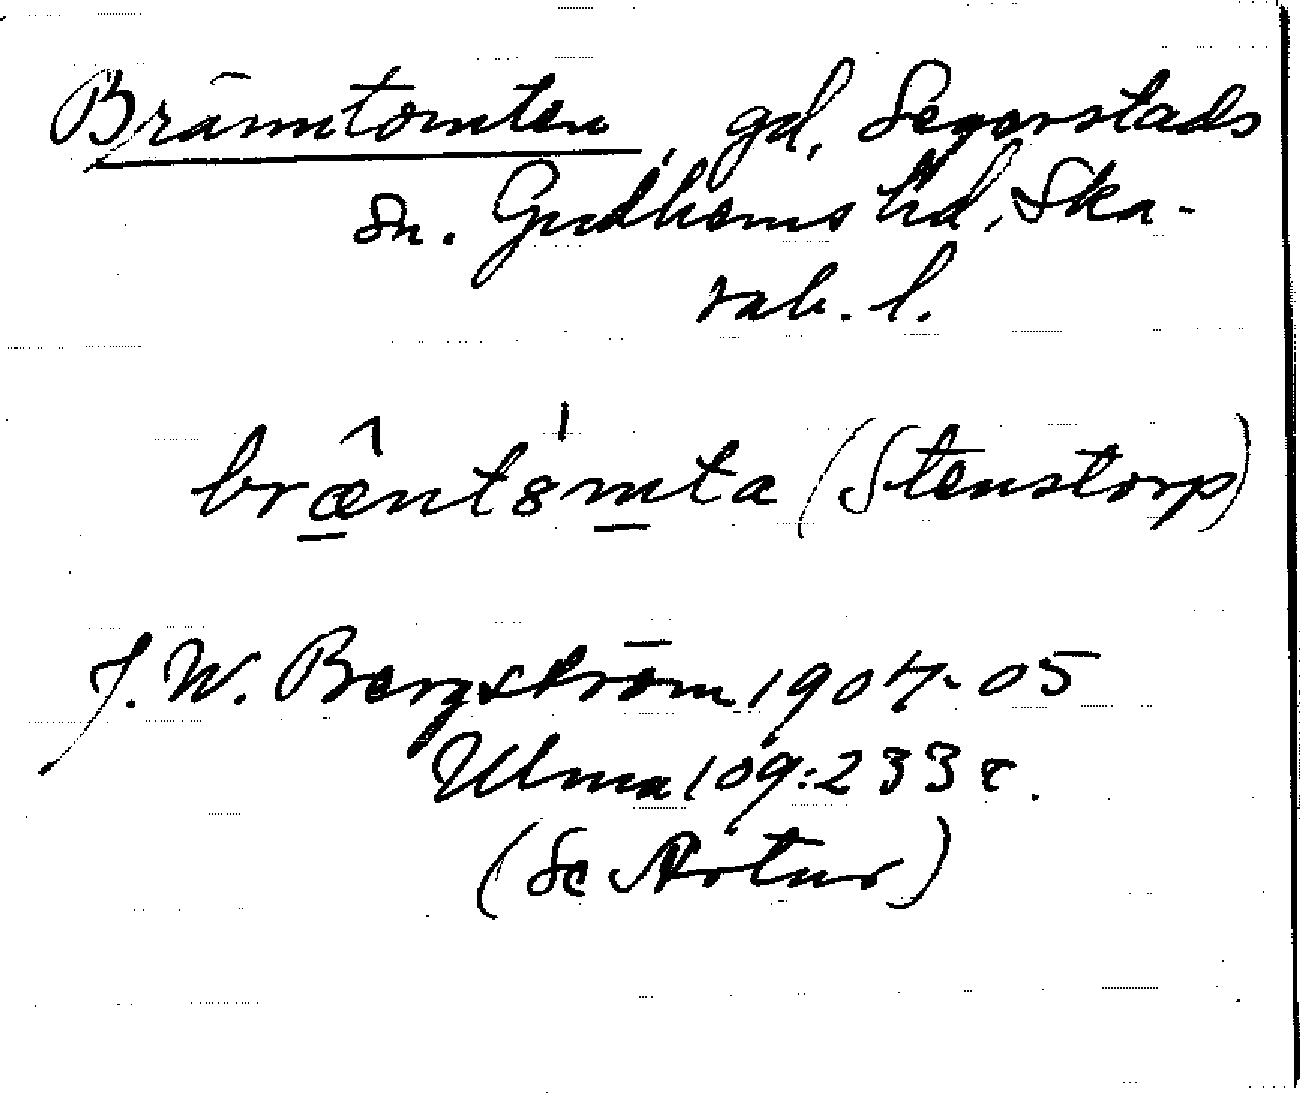 Bränntomten, gd, Segerstads
sn. Gudhems hd, Ska-
rab. l.
bræntȣmta (Stenstorp)
J. W. Bergström 1904-05
Ulma 109:233
(Se Artur)